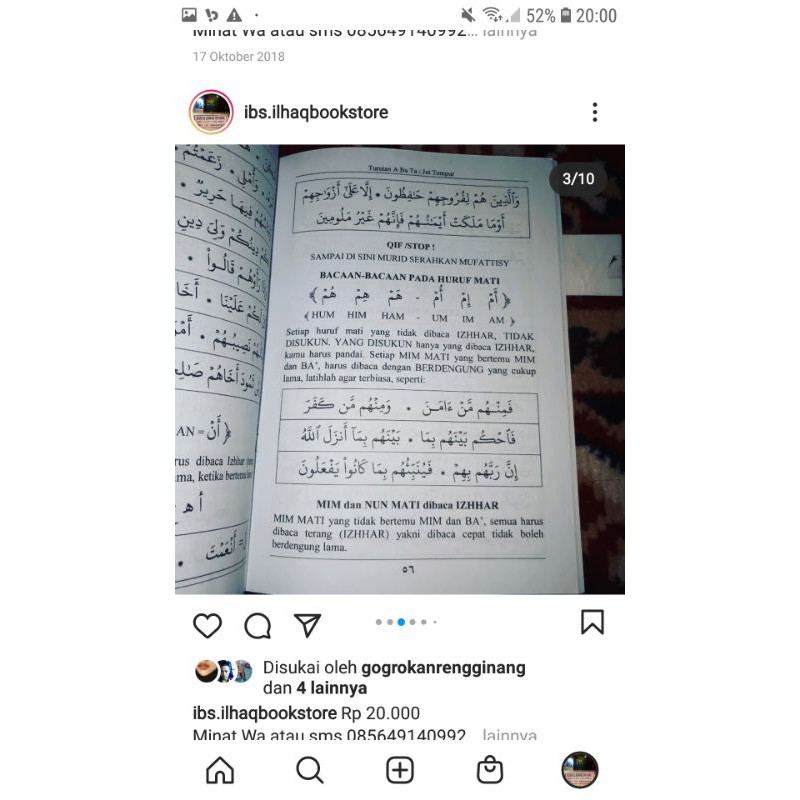 52% 20:00
Minat Wa atau sms 085649140992... lainnya
17 Oktober 2018
ibs.ilhaqbookstore
3/10
Turutan A Ba Ta : Jet Tempur
وَالَّذِينَ هُمْ لِفُرُوجِهِمْ حَافِظُونَ • إِلَّا عَلَىٰ أَزْوَاجِهِمْ
أَوْ مَا مَلَكَتْ أَيْمَانُهُمْ فَإِنَّهُمْ غَيْرُ مَلُومِينَ
QIF /STOP !
SAMPAI DI SINI MURID SERAHKAN MUFATTISY
BACAAN-BACAAN PADA HURUF MATI
﴿ أَمْ إِمْ أُمْ - هَمْ هِمْ هُمْ ﴾
( HUM HIM HAM - UM IM AM )
Setiap huruf mati yang tidak dibaca IZHHAR, TIDAK
DISUKUN. YANG DISUKUN hanya yang dibaca IZHHAR,
kamu harus pandai. Setiap MIM MATI yang bertemu MIM
dan BA', harus dibaca dengan BERDENGUNG yang cukup
lama, latihlah agar terbiasa, seperti:
فَمِنْهُم مَّنْ ءَامَنَ • وَمِنْهُم مَّن كَفَرَ
فَاحْكُم بَيْنَهُم بِمَا • بَيْنَهُم بِمَآ أَنزَلَ اللَّهُ
إِنَّ رَبَّهُم بِهِمْ • فَيُنَبِّئُهُم بِمَا كَانُوا يَفْعَلُونَ
MIM dan NUN MATI dibaca IZHHAR
MIM MATI yang tidak bertemu MIM dan BA', semua harus
dibaca terang (IZHHAR) yakni dibaca cepat tidak boleh
berdengung lama.
٥٦
زَعَمْتُمْ
فِيهَا حَرِيرٌ
دِينُكُمْ وَلِيَ دِينِ
قَالُوا
عَلَيْنَا • أَخَا
نَصِيبُهُمْ • أَمْ
ثَمُودَ أَخَاهُمْ صَالِحًا
AN = أَنْ ﴾
rus dibaca Izhhar
ma, ketika bertemu
أ هـ
= أَنْعَمْتَ
Disukai oleh gogrokanrengginang
dan 4 lainnya
ibs.ilhaqbookstore Rp 20.000
Minat Wa atau sms 085649140992... lainnya